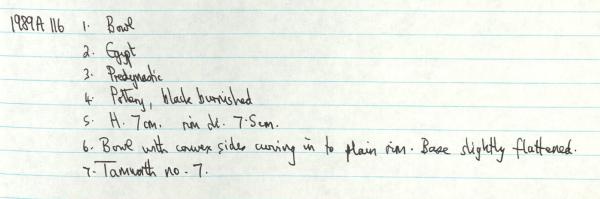 1989A 116 1. Bowl
2. Egypt
3. Predynastic
4. Pottery, black burnished
5. H. 7cm. rim di. 7.5cm.
6. Bowl with convex sides curving in to plain rim. Base slightly flattened.
7. Tamworth no. 7.